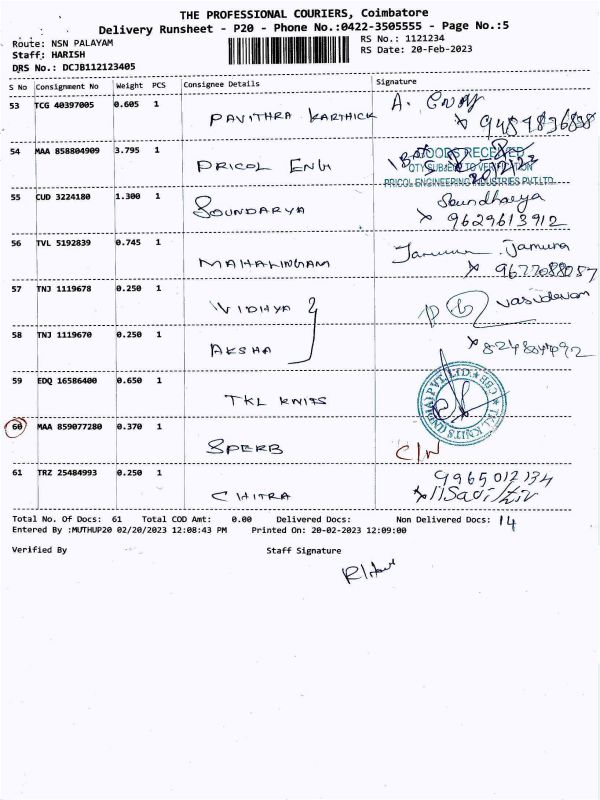 THE PROFESSIONAL COURIERS, Coimbatore
Delivery Runsheet - P20 - Phone No.:0422-3505555 - Page No.:5
Route: NSN PALAYAM
RS No.: 1121234
Staff: HARISH
RS Date: 20-Feb-2023
DRS No.: DCJB112123405
S No Consignment No Weight PCS Consignee Details Signature
53 TCG 40397005 0.605 1 PAVITHRA KARTHICK A.
54 MAA 858804909 3.795 1 PRICOL ENG
GOODS RECEIVED
QTY SUBJECT TO VERIFICATION
PRICOL ENGINEERING INDUSTRIES PVT.LTD.
55 CUD 3224180 1.300 1 SOUNDARYA Soundharya
9629613912
56 TVL 5192839 0.745 1 MAHALINGAM Jamuna
9677088057
57 TNJ 1119678 0.250 1 VIDHYA
58 TNJ 1119670 0.250 1 AKSHA
59 EDQ 16586400 0.650 1 TKL KNITS
TKL KNITS (INDIA) PVT. LTD.
60 MAA 859077280 0.370 1 SPERB C/N
61 TRZ 25484993 0.250 1 CHITRA 9965012134
Total No. Of Docs: 61 Total COD Amt: 0.00 Delivered Docs: Non Delivered Docs: 14
Entered By :MUTHUP20 02/20/2023 12:08:43 PM Printed On: 20-02-2023 12:09:00
Verified By Staff Signature